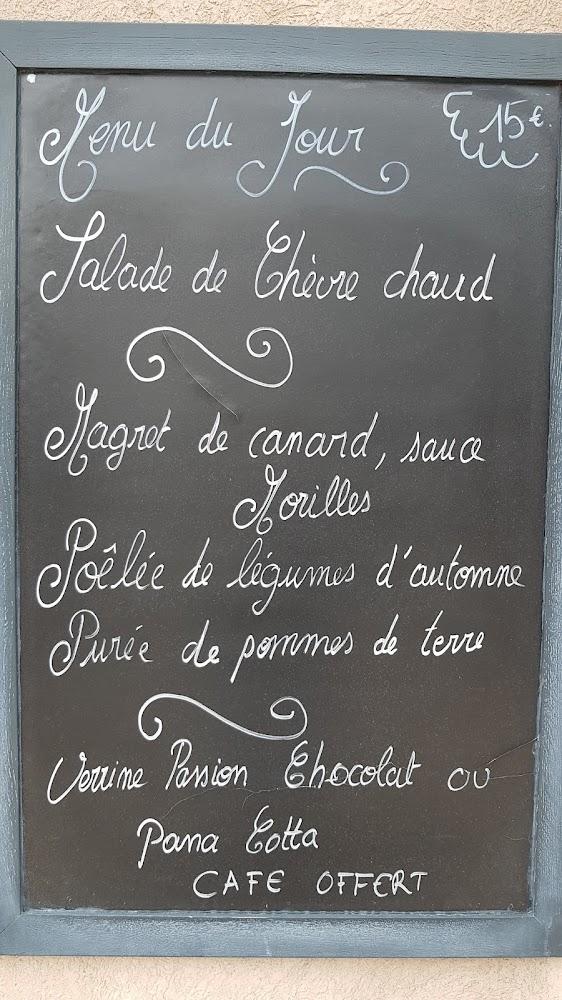 Menu du Jour 15€
Salade de Chèvre chaud
Magret de canard, sauce
Morilles
Poêlée de légumes d'automne
Purée de pommes de terre
Verrine Passion Chocolat ou
Pana Cotta
CAFE OFFERT